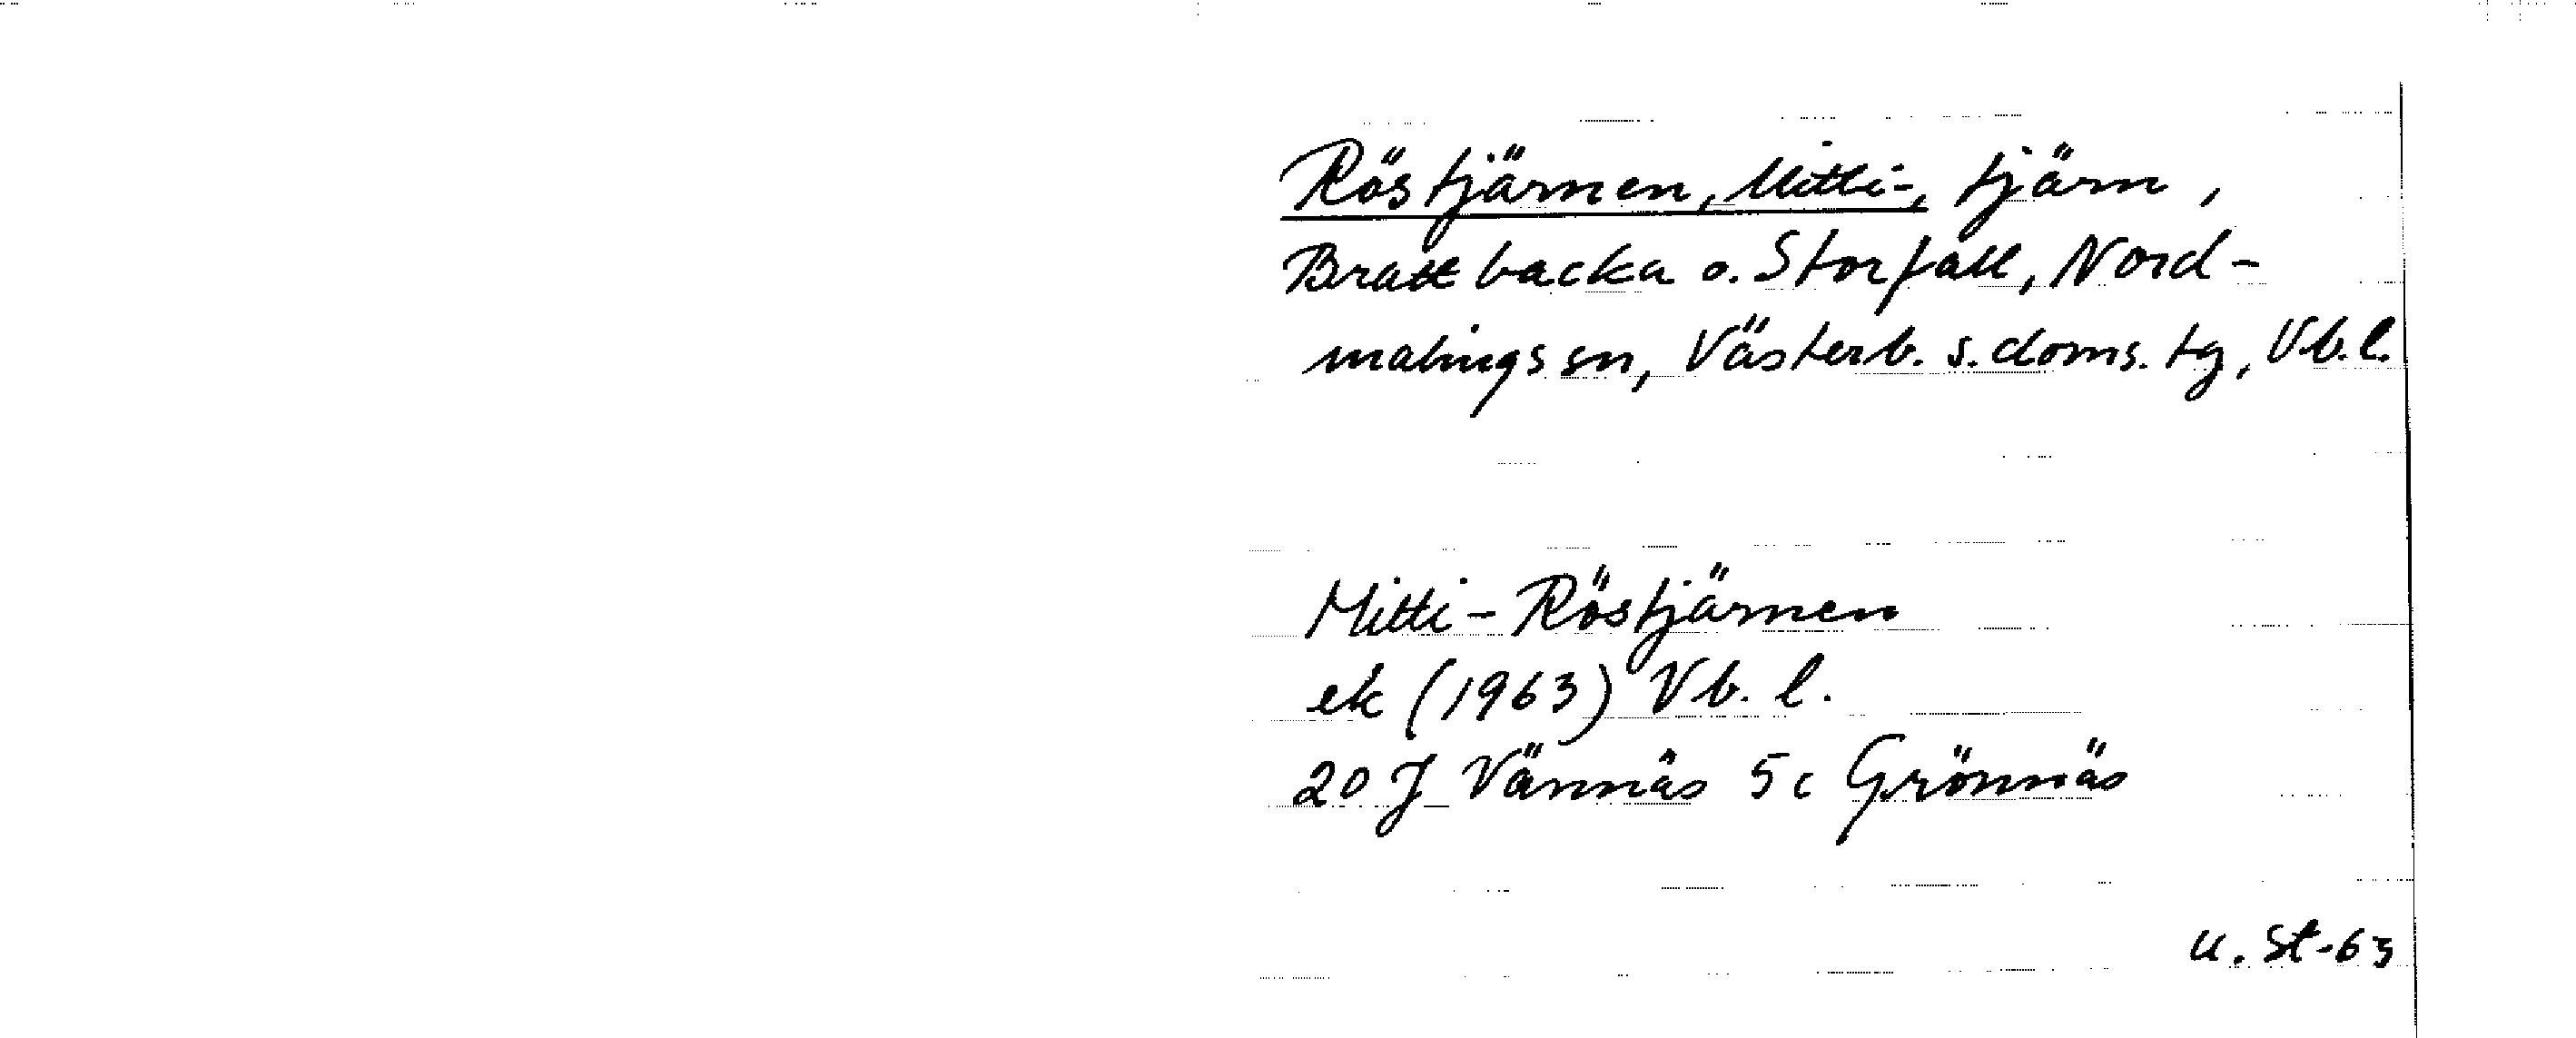 Röstjärnen, Mitti-, tjärn,
Brattbacka o. Storfall, Nord-
malings sn, Västerb. s. doms. tg, Vb. l.
Mitti-Röstjärnen
ek (1963) Vb. l.
20 J Vännäs 5 c Grönnäs
U. St-63